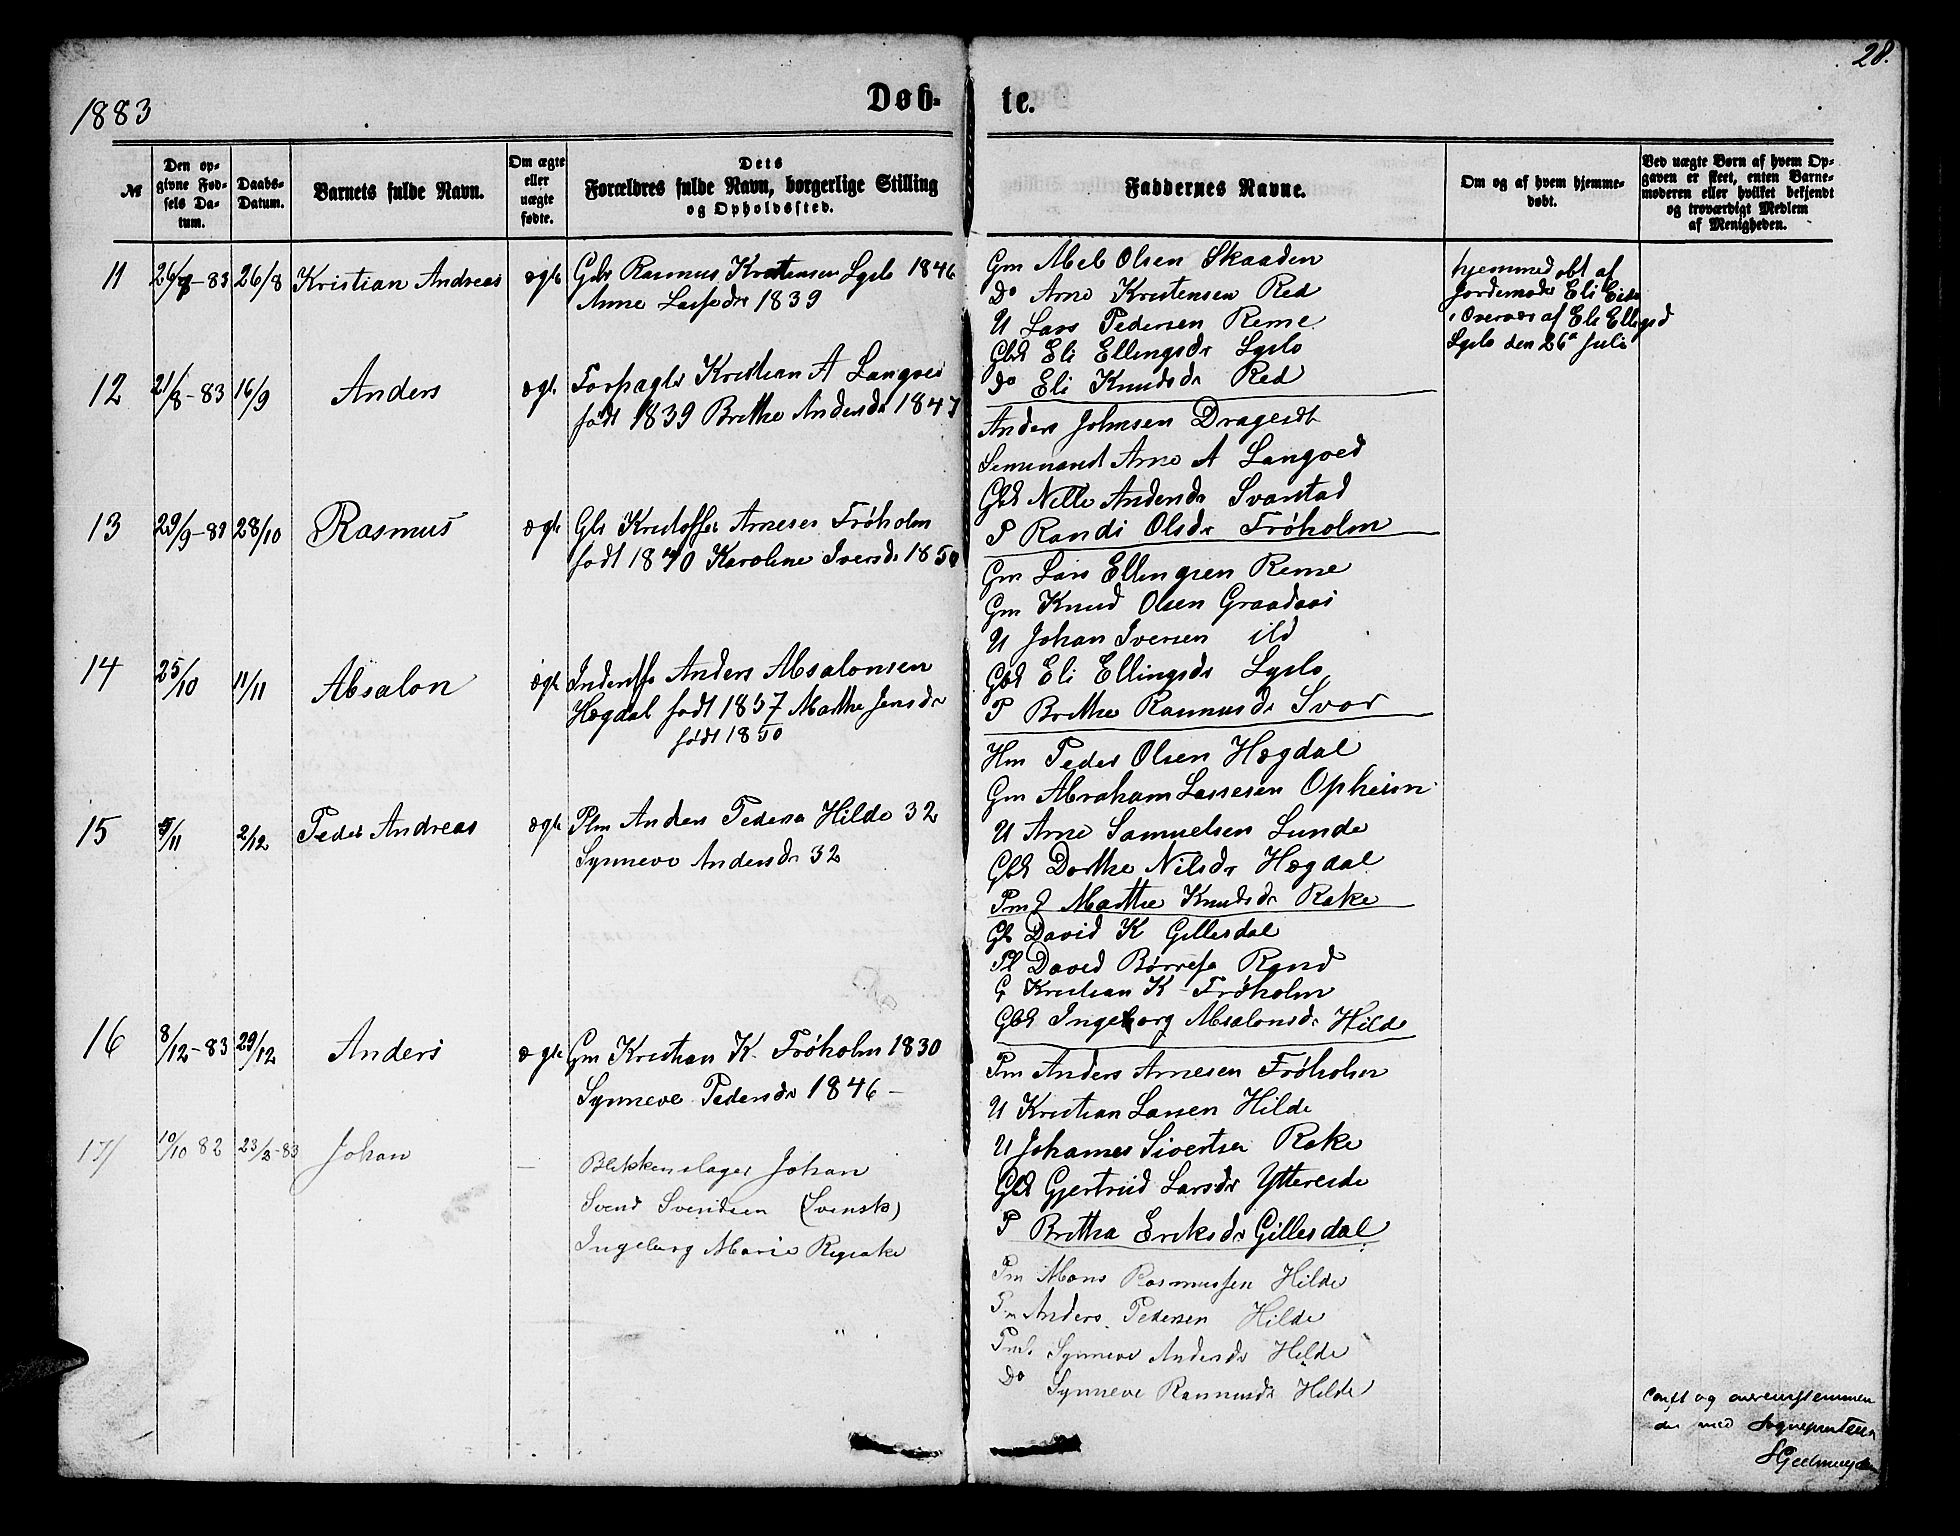 28.
1883
Døb- te.
№
Den opgivne Fødsels Datum.
Daabs-Datum.
Barnets fulde Navn.
Om ægte eller uægte fødte.
Dets Forældres fulde Navn, borgerlige Stilling og Opholdssted.
Faddernes Navne.
Om og af hvem hjemmedøbt.
Ved uægte Børn af hvem Opgaven er skeet, enten Barnemoderen eller hvilket bekjendt og troværdigt Medlem af Menigheden.
11 26/7-83 26/8 Kristian Andreas ægte Gbr Rasmus Kristensen Lyslo 1846
Anne Lassedr 1839
Gm Abel Olsen Skaaden
Do Arne Kristensen Red
U Lars Pedersen Reme
Gbd Eli Ellingsdr Lyslo
Do Eli Knudsdr Red
hjemmedøbt af
Jordemoder Eli Eide
i Overvær af Eli Ellingsd
Lyslo den 26 Juli
12 21/8-83 16/9 Anders ægt. Forpagter Kristian A Langvei
født 1839 Brithe Andersdr 1847
Anders Johnsen Drageidt
Seminarist Arne A Langved
Gbd Nille Andersdr Svarstad
P Randi Olsdr Frøholm
13 29/9-83 28/10 Rasmus ægte Gbr Kristoffer Arnesen Frøholm
født 1840 Karoline Iversdr 1850
Gm Lars Ellingsen Reme
Gm Knud Olsen Graadaai
U Johan Iversen ild
Gbd Eli Ellingsdr Lyslo
P Brithe Rasmusdr Svor
14 25/10 11/11 Absalon ægte Inderste Anders Absalonsen
Hægdal født 1857 Marthe Jensdr
født 1850
Hm Peder Olsen Hægdal
Gm Abraham Lassesen Opheim
U Arne Samuelsen Lunde
Gbd Dorthe Nilsdr Hægdal
Pmd Marthe Knudsdr Rake
15 9/11 2/12 Peder Andreas ægte Plm Anders Pedersen Hilde 32
Synneve Andersdr 32
Gb David K Gillesdal
Pl David Børresen Rand
G Kristian K Frøholm
Gbd Ingeborg Absalonsdr Hilde
16 8/12-83 29/12 Anders ægte Gm Kristian K. Frøholm 1830
Synneve Pedersdr 1846 -
Pm Anders Arnesen Frøholm
U Kristian Larsen Hilde
U Johannes Sivertsen Rake
Gbd Gjertrud Larsdr Ytrereide
P Britha Eriksdr Gillesdal
17/ 10/10 82 23/3-83 Johan - Blikkenslager Johan
Svend Svendsen (Svensk)
Ingeborg Marie Rygrake
Pm Mons Rasmussen Hilde
Pm Anders Pedersen Hilde
Pmd. Synneve Andersdr Hilde
Do Synneve Rasmusdr Hilde
Conft og overenstemmen
de med Sognepresten
HGeelmuyden